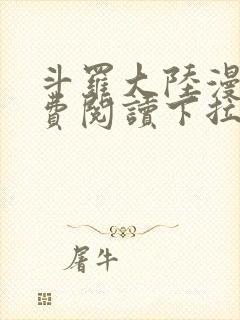 斗羅大陸漫
費閱讀下拉
屠牛